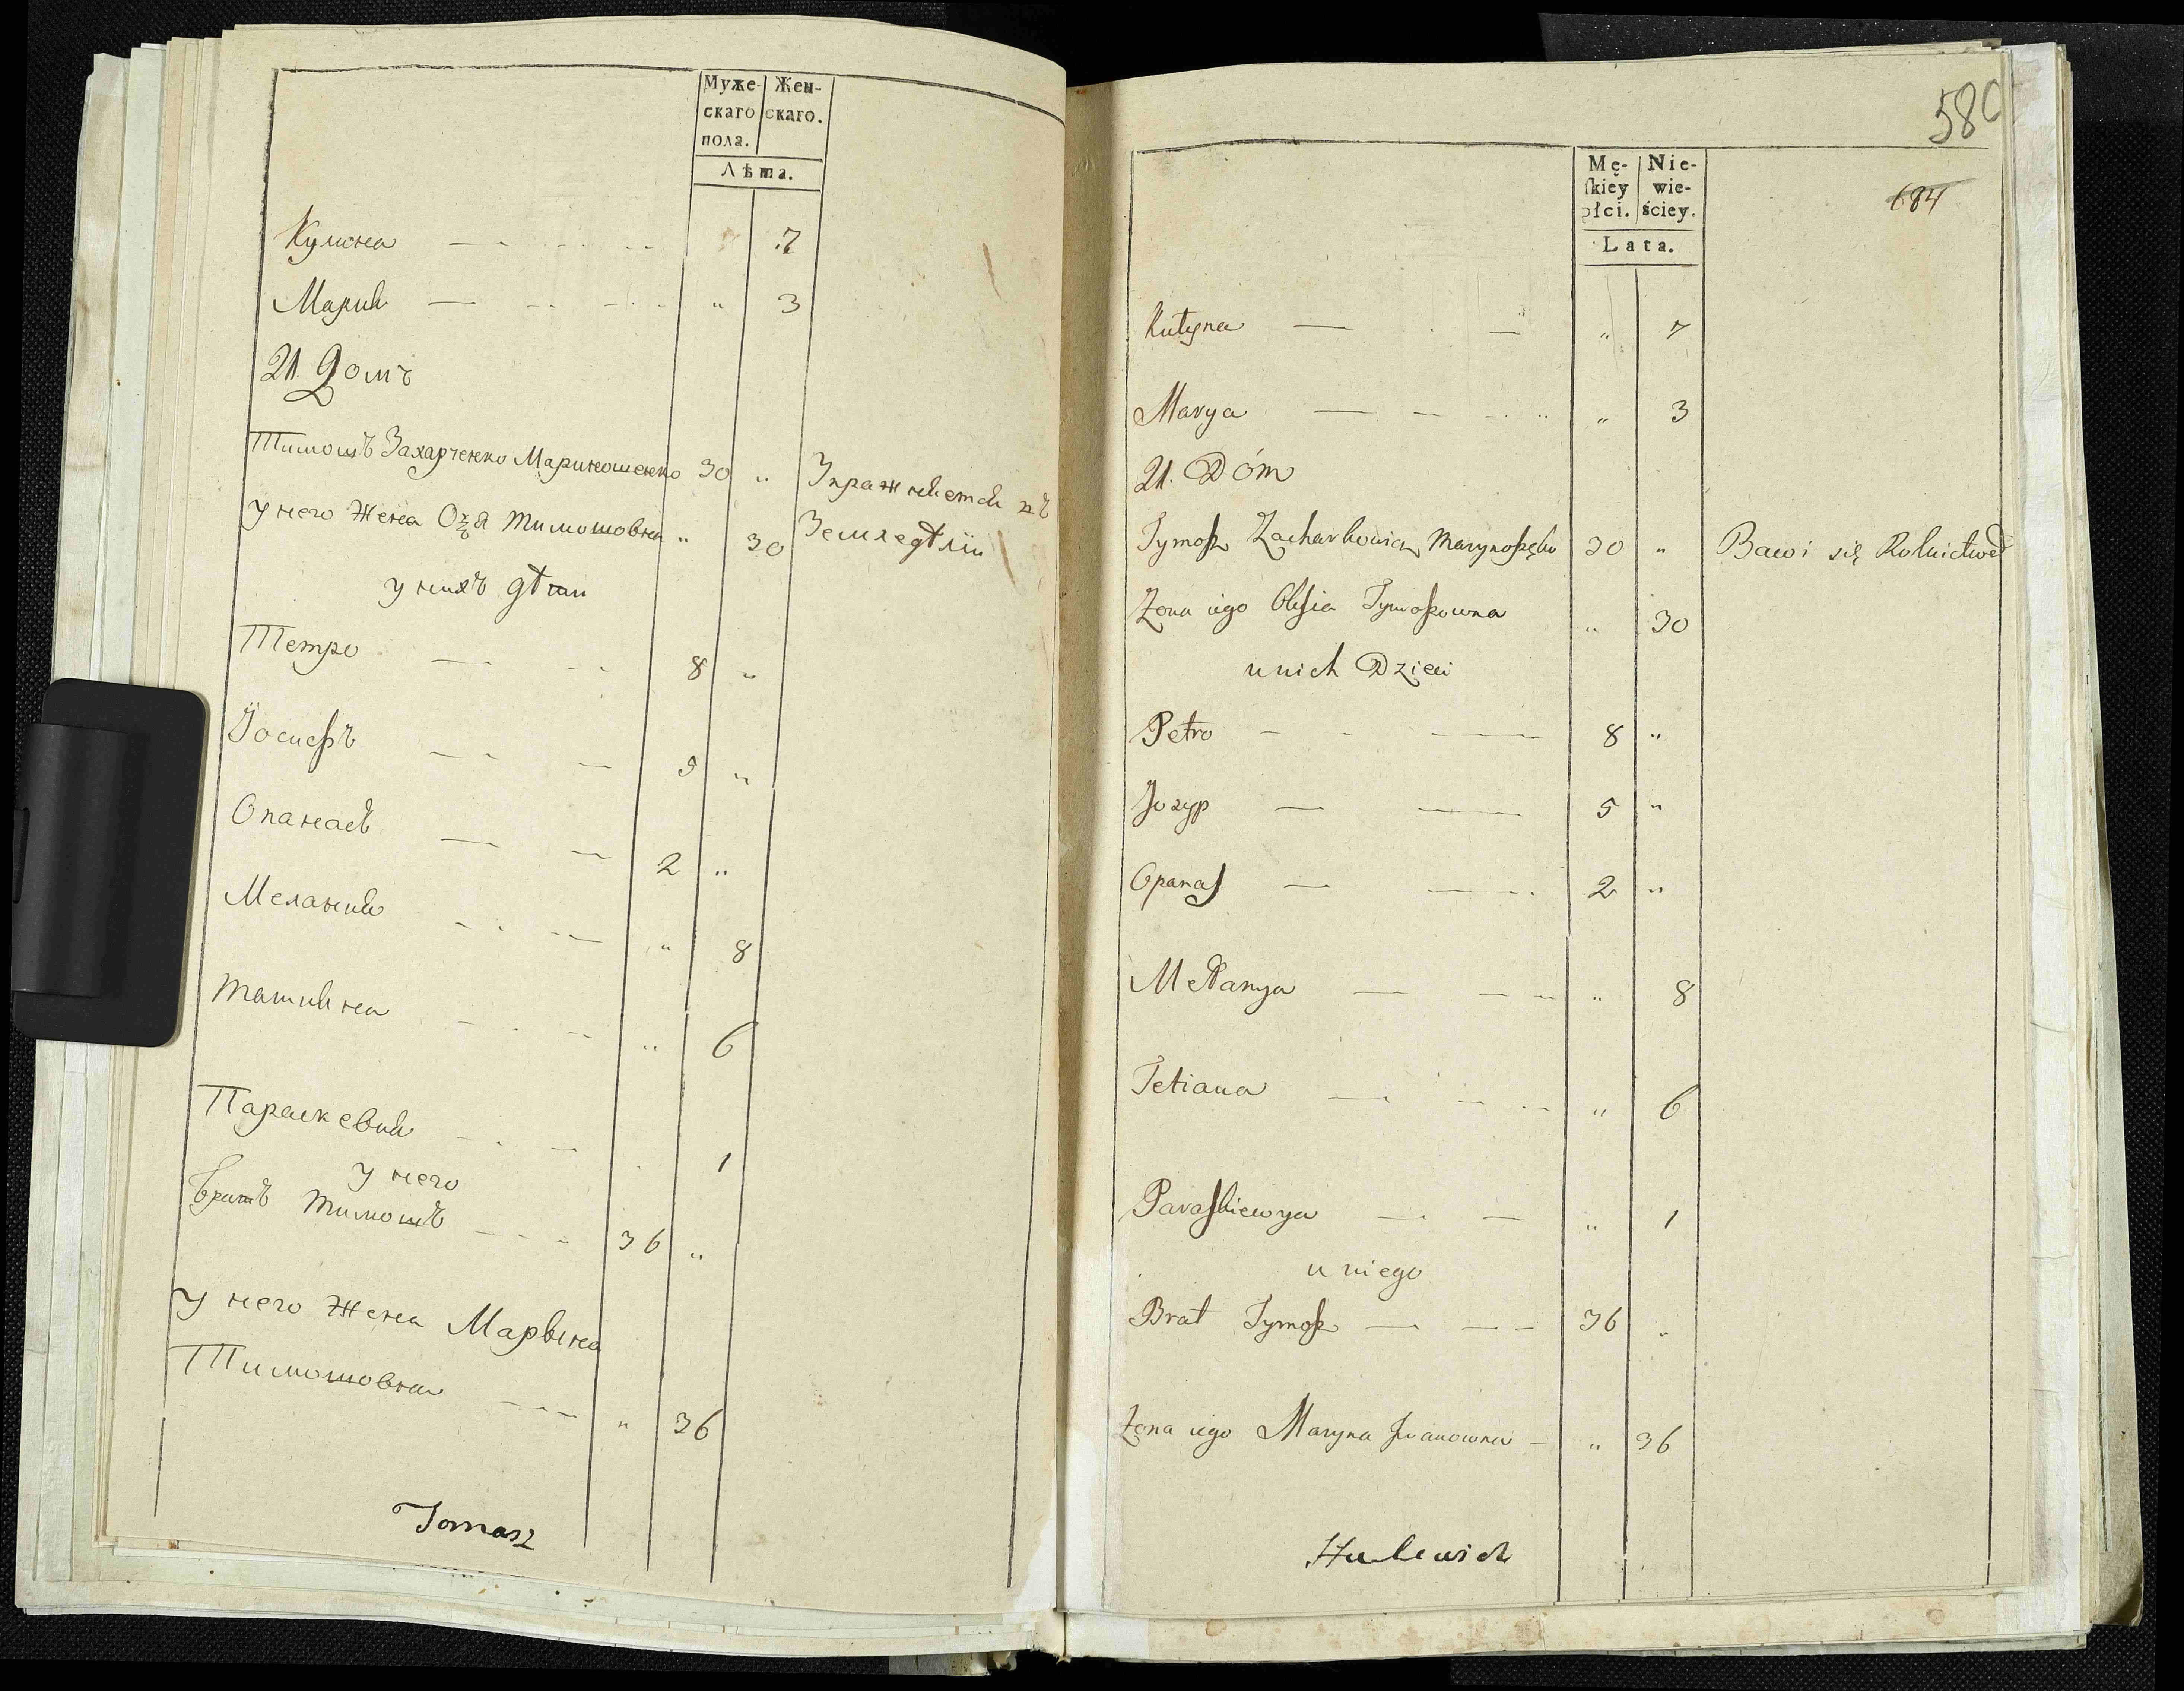 Муже- Жен-
скаго скаго.
пола.
Лѣта.
7
Мария — „ 3
21. Домъ
Тимошъ Захарченко Мариношенко 30 „ Упражняется въ
у него жена Тимошовна „ 30 Земледѣлїи
у нихъ дѣти
Петро — 8 „
Іосифъ — 5 „
Опанасъ — 2 „
Мелания — „ 8
Татияна — „ 6
Параскевия — 1
у него
братъ Тимошъ — 36 „
у него жена Марына
Тимошовна — „ 36
Tomasz
580
684
Mę- Nie-
ſkiey wie-
płci. ściey.
Lata.
„ 7
Marya — „ 3
21. Dóm
Tymosz Zacharkowicz 30 „ Bawi się Rolnictwem
Zona iego Olesia Tymoszowna „ 30
u nich Dzieci
Petro — 8 „
Jozyp — 5 „
Opanas — 2 „
Melanya — „ 8
Tetiana — „ 6
Paraskiewya — „ 1
u niego
Brat Tymosz — 36 „
Zona iego Maryna Iwanowna — „ 36
Hulewicz